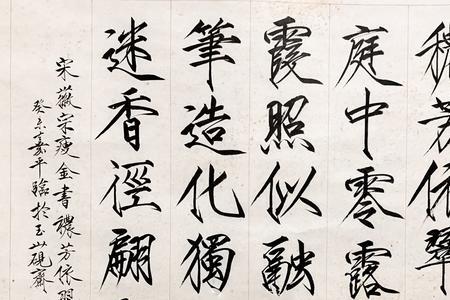 穠芳依翠
庭中零露
霞照似融
筆造化獨
迷香徑翩
宋徽宗瘦金書穠芳依
癸未嘉平臨於玉山硯齋